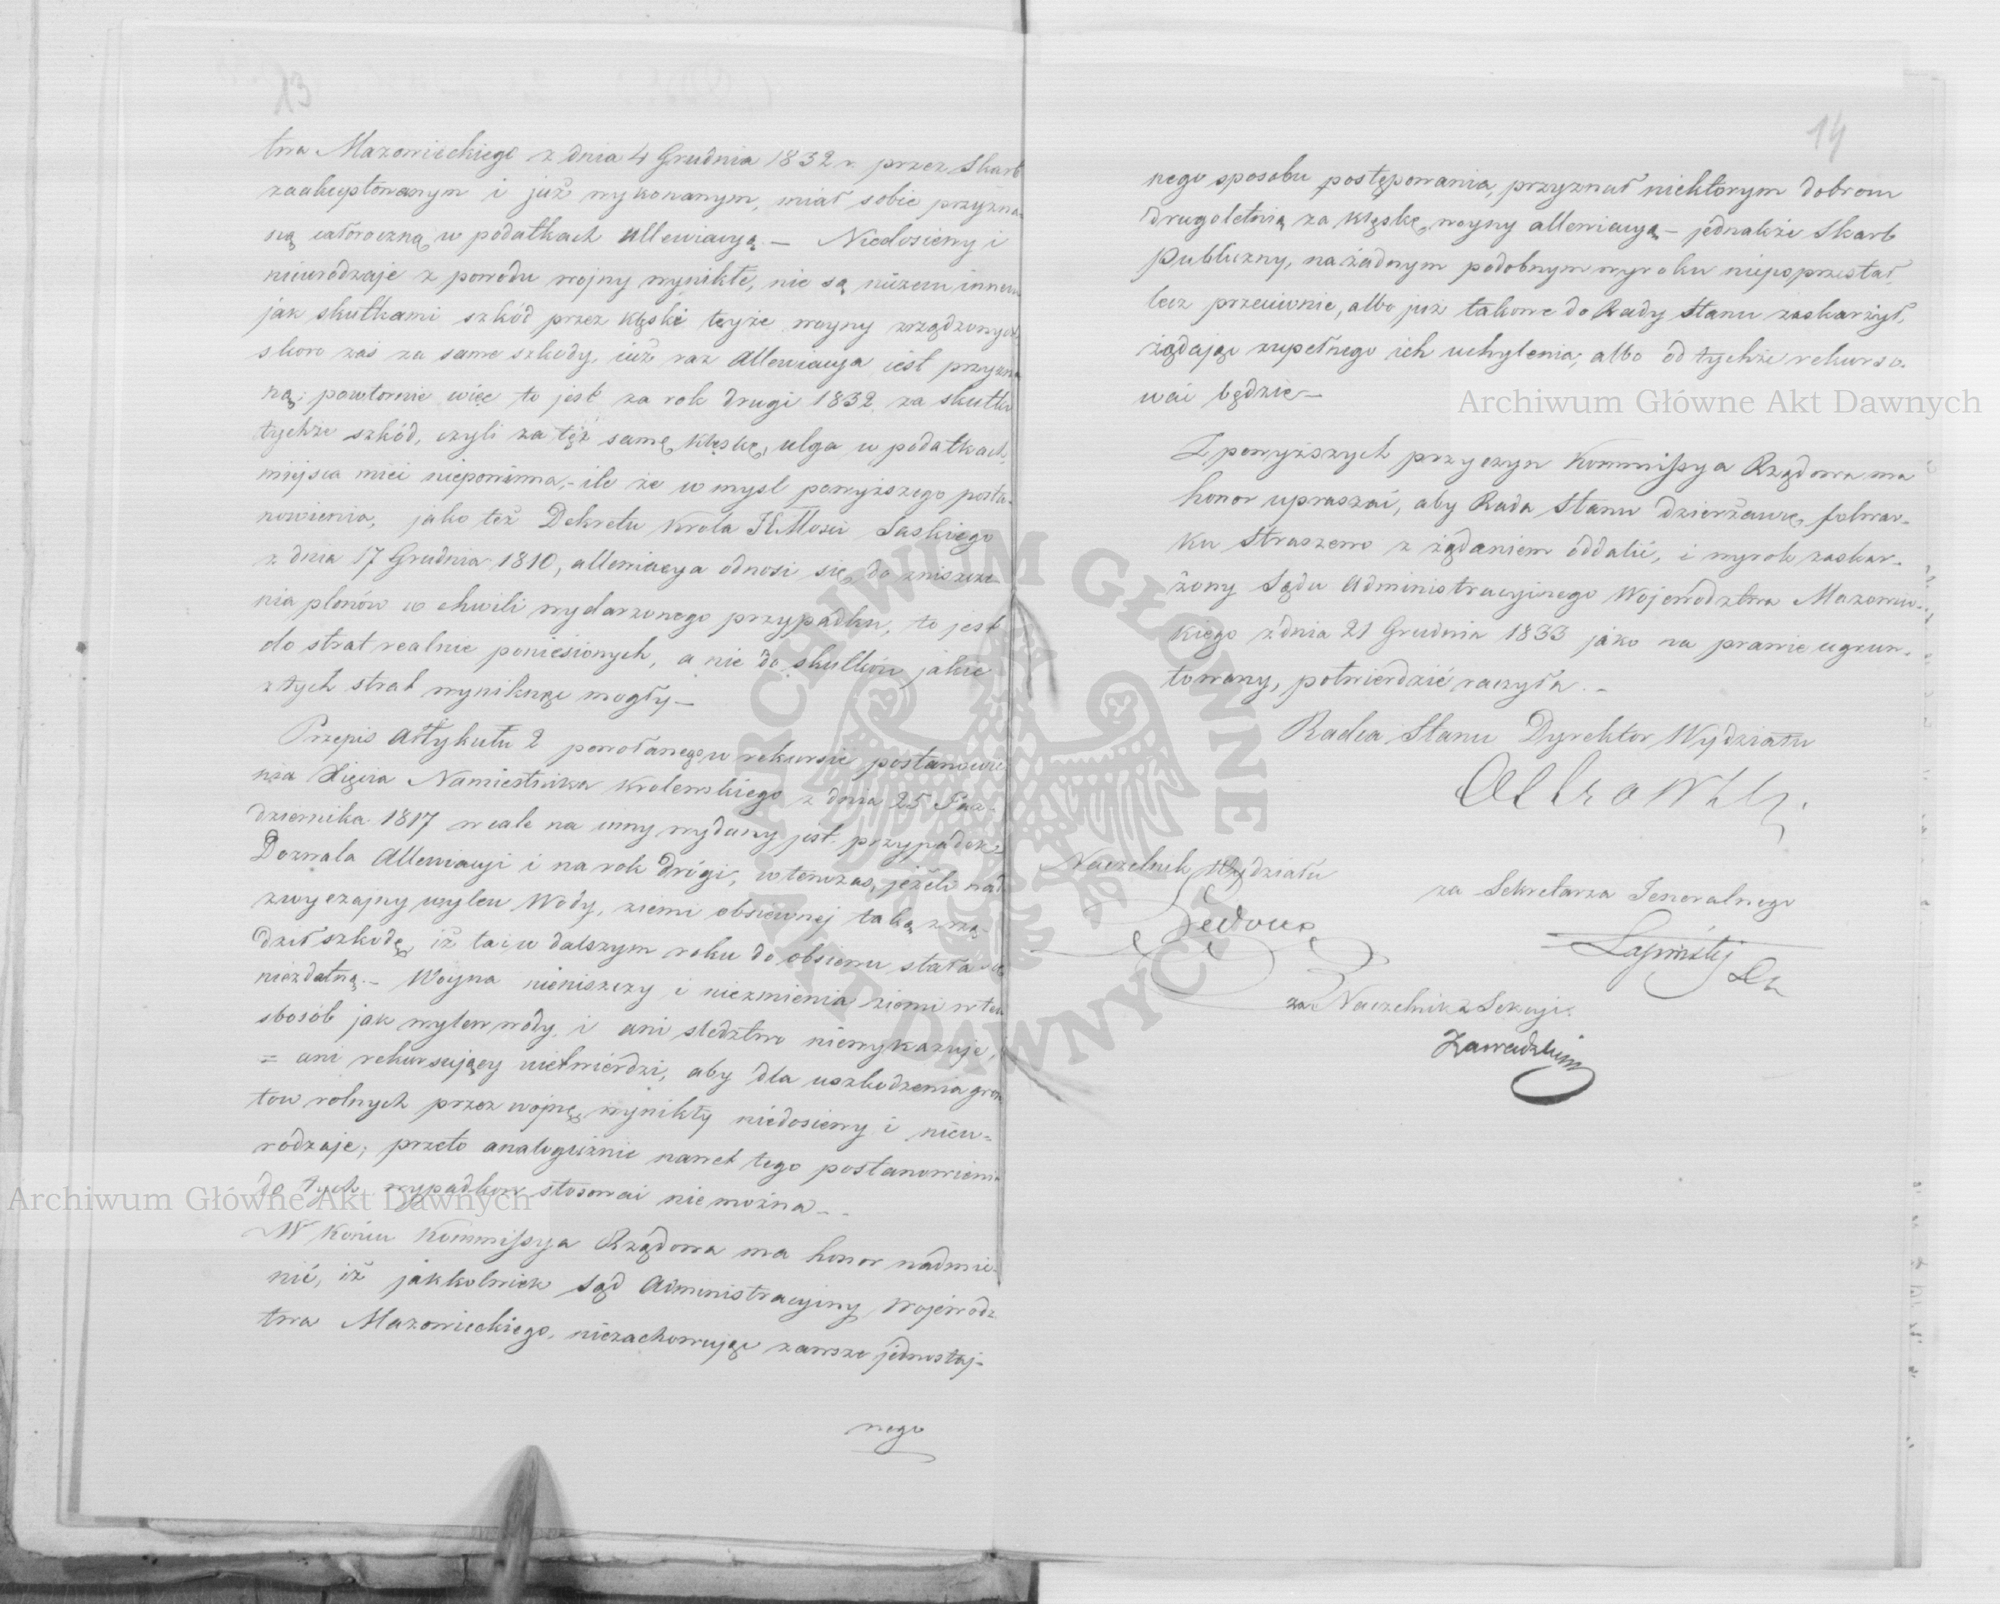 13
twa Mazowieckiego z dnia 4 Grudnia 1832 r. przez Skarb
zaakceptowanym i już wykonanym, miał sobie przyzna-
ną całoroczną w podatkach allewiacyą. — Niedosiewy i
nieurodzaje z powodu wojny wynikłe, nie są niczem innem
jak skutkami szkód przez klęski teyże woyny zrządzonych
skoro zaś za same szkody, już raz allewiacya iest przyzna
ną; powtornie więc to jest za rok drugi 1832, za skutki
tychże szkód, czyli za też samę klęskę, ulga w podatkach
miejsca mieć niepowinna, - ile że w mysl powyższego posta-
nowienia, jako też Dekretu Krola JKMosci Saskiego
z dnia 17 Grudnia 1810, allewiacya odnosi się do zniszcze
nia plonów w chwili wydarzonego przypadku, to jest
do strat realnie poniesionych, a nie do skutków jakie
z tych strat wyniknąć mogły —
Przepis Artykułu 2 powołanego w rekursie postanowie
nia Xięcia Namiestnika Krolewskiego z dnia 25 Paź-
dziernika 1817 wcale na inny wydany jest przypadek
Dozwala Allewiacyi i na rok drugi, wtenczas, jeżeli nad
zwyczajny wylew Wody, ziemi obsiewnej taką zrzą-
dził szkodę, iż taż w dalszym roku do obsiewu stała się
niezdatną. - Woyna nieniszczy i niezmienia ziemi w ten
sposób jak wylew wody, i ani sledztwo niewykazuje,
= ani rekursujący nietwierdzi, aby dla uszkodzenia grun
tow rolnych przez wojnę wynikły niedosiewy i nieu-
rodzaje; przeto analogicznie nawet tego postanowienia
do tych wypadkow stosować nie można - -
W końcu Kommissya Rządowa ma honor nadmie-
nić, iż jakkolwiek Sąd Administracyiny Wojewódz
twa Mazowieckiego, niezachowując zawsze jednostaj-
nego
14
nego sposobu postępowania, przyznał niektorym dobrom
drugoletnią za klęskę woyny allewiacyą — jednakże Skarb
Publiczny, na żadnym podobnym wyroku niepoprzestał,
lecz przeciwnie, albo już takowe do Rady Stanu zaskarżył,
żądając zupełnego ich uchylenia, albo od tychże rekurso-
wać będzie —
Z powyższych przyczyn Kommissya Rządowa ma
honor upraszać, aby Rada Stanu dzierżawcę folwar-
ku Straszewo z żądaniem oddalić, i wyrok zaskar-
żony Sądu Administracyinego Wojewodztwa Mazowiec-
kiego z dnia 21 Grudnia 1833 jako na prawie ugrun-
towany, potwierdzić raczyła. -
Radca Stanu Dyrektor Wydziału
Naczelnik Wydziału
za Sekretarza Jeneralnego
za Naczelnika Sekcyi.
Zawadzki
Archiwum Główne Akt Dawnych
Archiwum Główne Akt Dawnych
ARCHIWUM GŁÓWNE AKT DAWNYCH